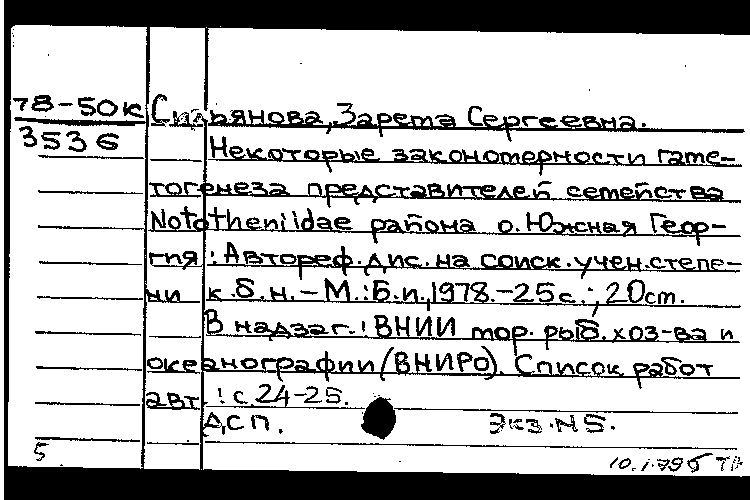 78-50к Сильянова, Зарета Сергеевна.
3536
Некоторые закономерности гаме-
тогенеза представителей семейства
Nototheniidae района о. Южная Геор-
гия : Автореф. дис. на соиск. учен. степе-
ни к.б.н. – М.: Б.и., 1978. – 25 с.; 20 cm.
В надзаг.: ВНИИ мор. рыб. хоз-ва и
океанографии (ВНИРО). Список работ
авт.: с. 24-25.
ДСП. Экз. N 5.
5